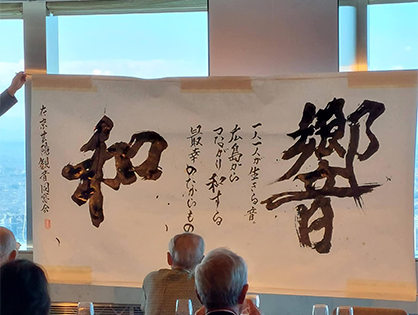 響
一人一人が生きる音。
広島から
つながり 和する
最幸の
和
在京広島観音同窓会